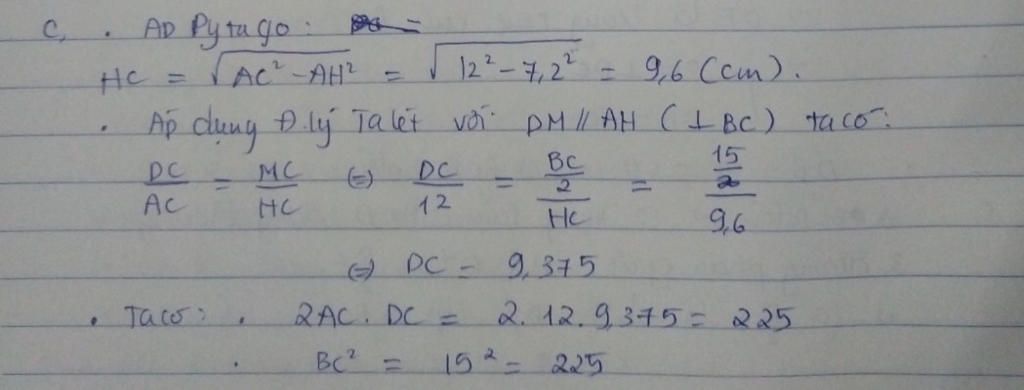 C, . AD Pytago:
HC = √AC² - AH² = √12² - 7,2² = 9,6 (cm).
. Áp dụng Đ.lý Talét với DM // AH (⊥ BC) ta có:
DC/AC = MC/HC (=) DC/12 = (BC/2)/HC = (15/2)/9,6
(=) DC = 9,375
. Ta có: . 2AC . DC = 2.12.9,375 = 225
. BC² = 15² = 225